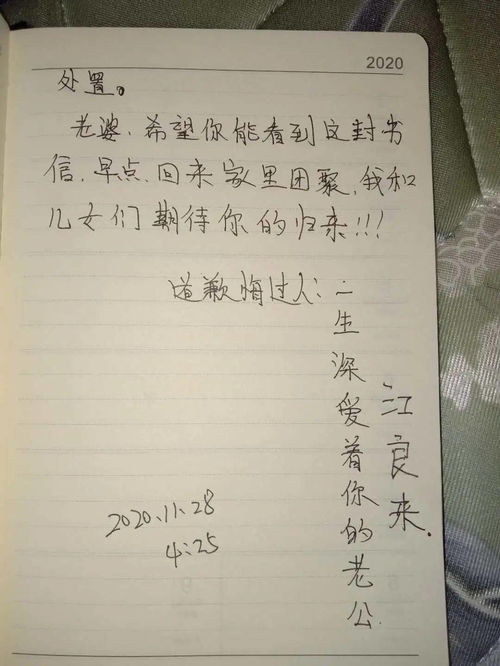 2020
处置。
老婆,希望你能看到这封书
信,早点,回来家里团聚,我和
儿女们期待你的归来!!!
道歉悔过人:一生深爱着你的老公
江良来.
2020.11.28
4:25